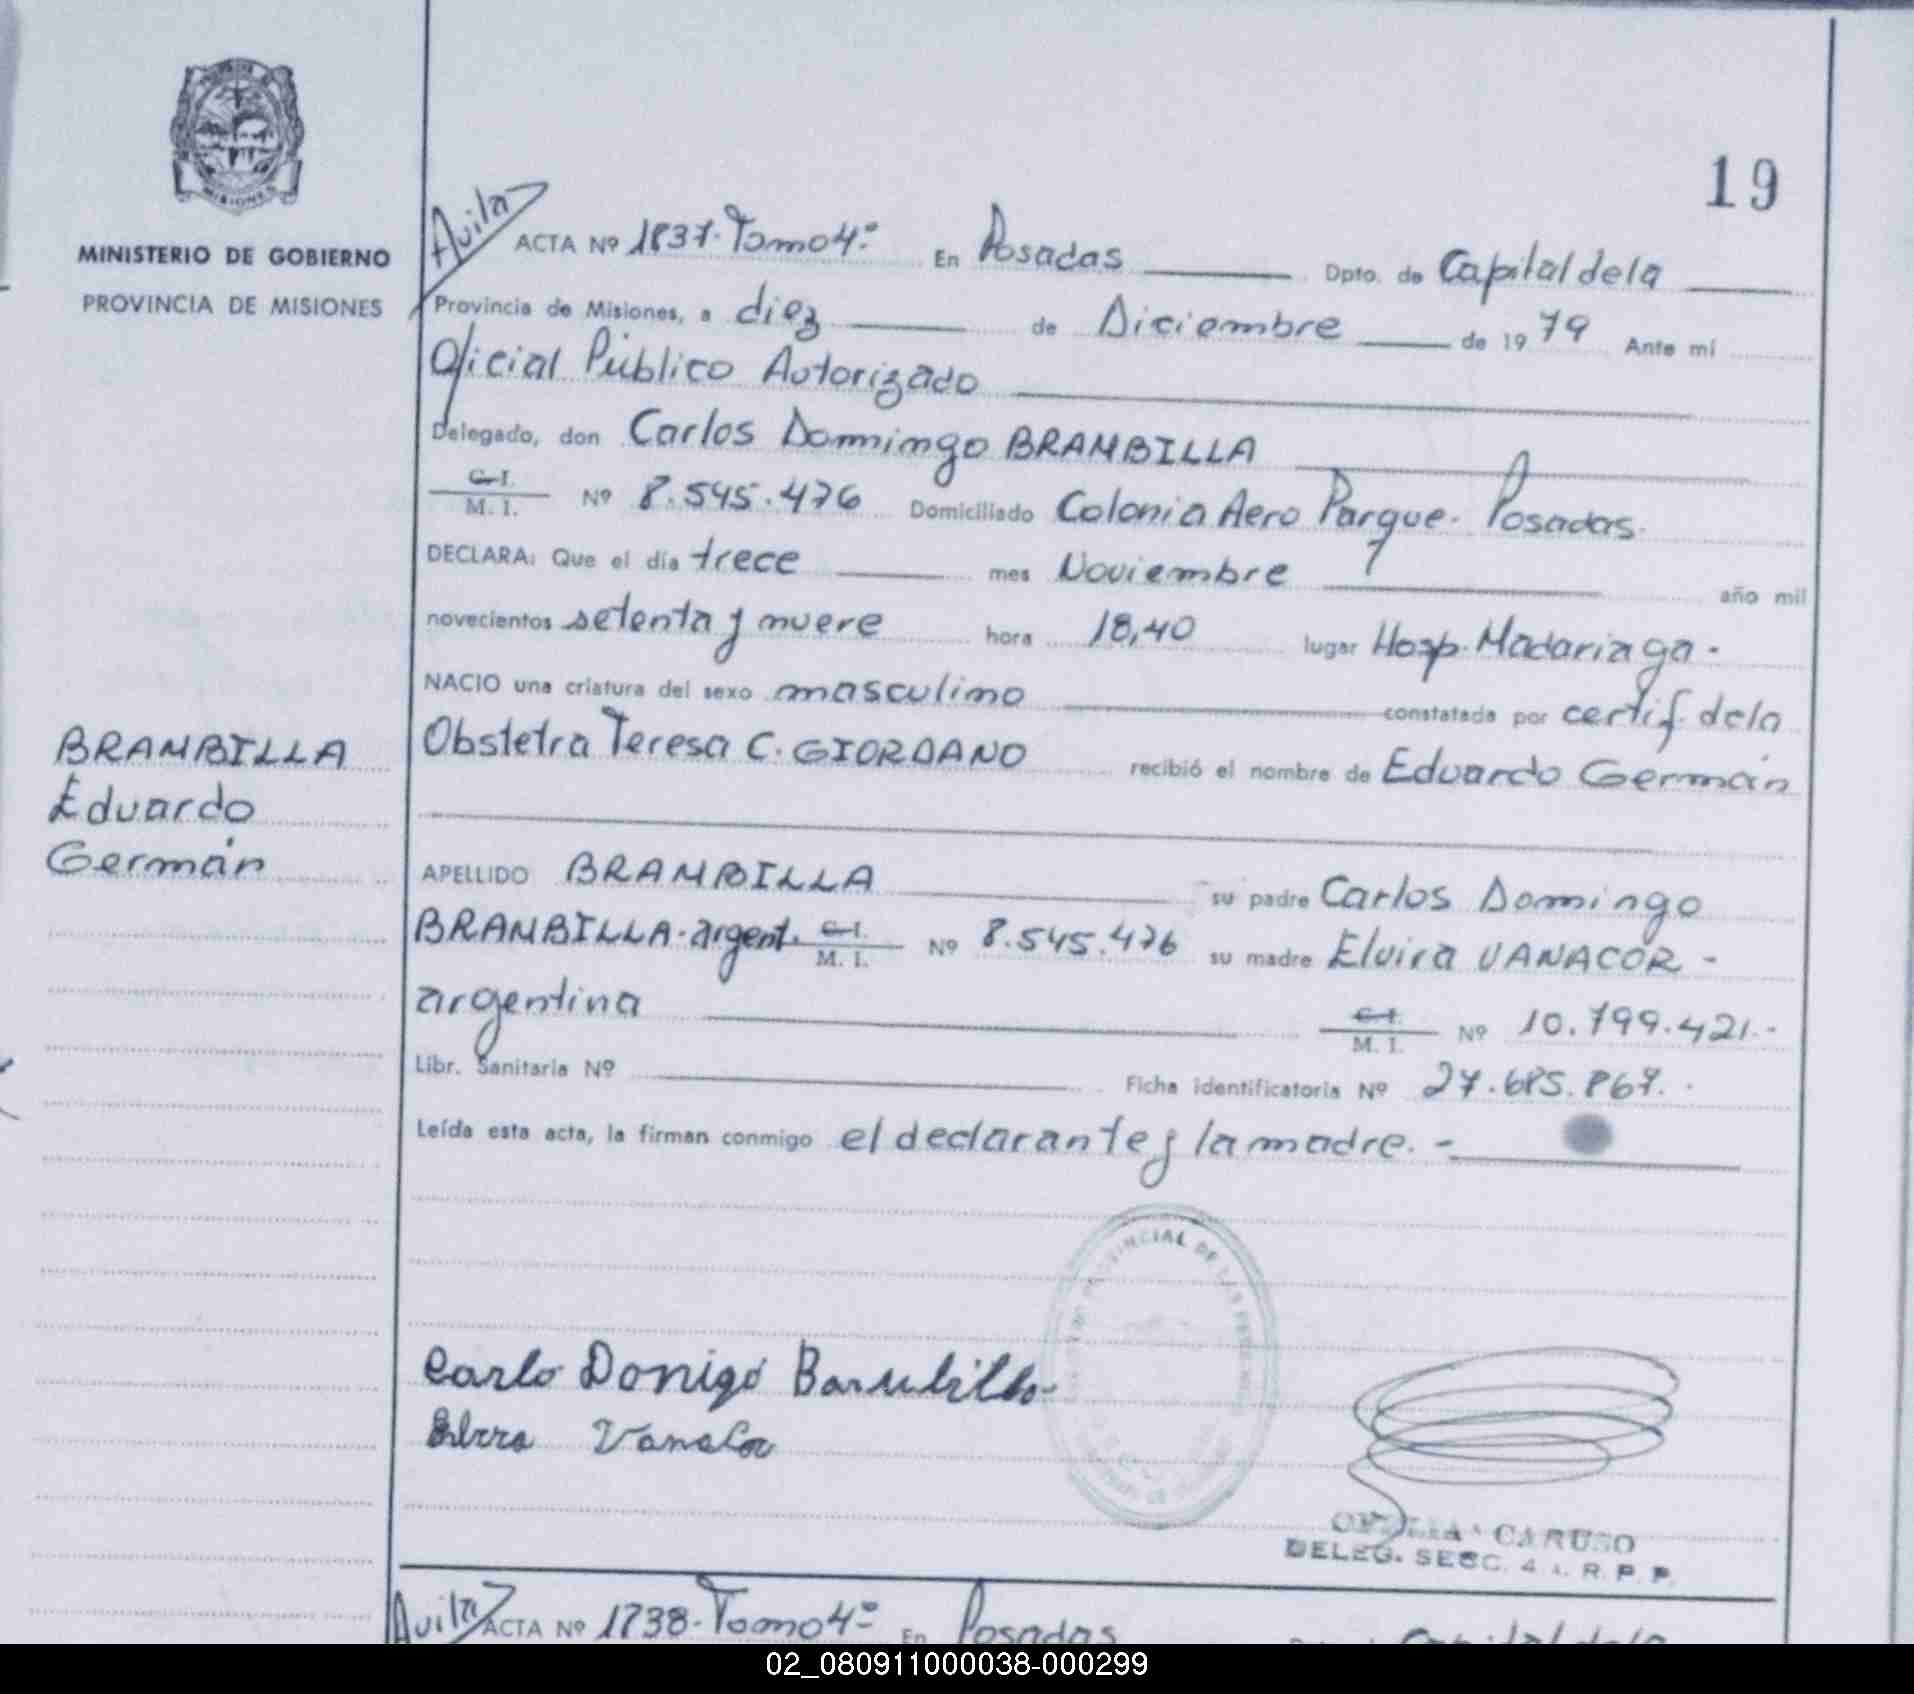 19
MISIONES
MINISTERIO DE GOBIERNO
PROVINCIA DE MISIONES
BRAMBILLA
Eduardo
Germán
Avila
ACTA Nº 1837. Tomo 4º En Posadas Dpto. de Capital de la
Provincia de Misiones, a diez de Diciembre de 1979 Ante mí
Oficial Público Autorizado
Delegado, don Carlos Domingo BRAMBILLA
C. I. / M. I. Nº 8.545.476 Domiciliado Colonia Aero Parque. Posadas.
DECLARA: Que el día trece mes Noviembre año mil
novecientos setenta y nueve hora 18,40 lugar Hosp. Madariaga.
NACIO una criatura del sexo masculino constatada por certif. de la
Obstetra Teresa C. GIORDANO recibió el nombre de Eduardo Germán
APELLIDO BRAMBILLA su padre Carlos Domingo
BRAMBILLA. argent. C. I. / M. I. Nº 8.545.476 su madre Elvira VANACOR -
argentina C. I. / M. I. Nº 10.799.421.-
Libr. Sanitaria Nº Ficha identificatoria Nº 27.685.867.
Leída esta acta, la firman conmigo el declarante y la madre. -
PROVINCIAL DE LAS
Carlo Donigo
Vanacor
CARUSO
DELEG. SECC. 4 R. P. P.
Avila
ACTA Nº 1738. Tomo 4º En Posadas Capital de la
02_080911000038-000299